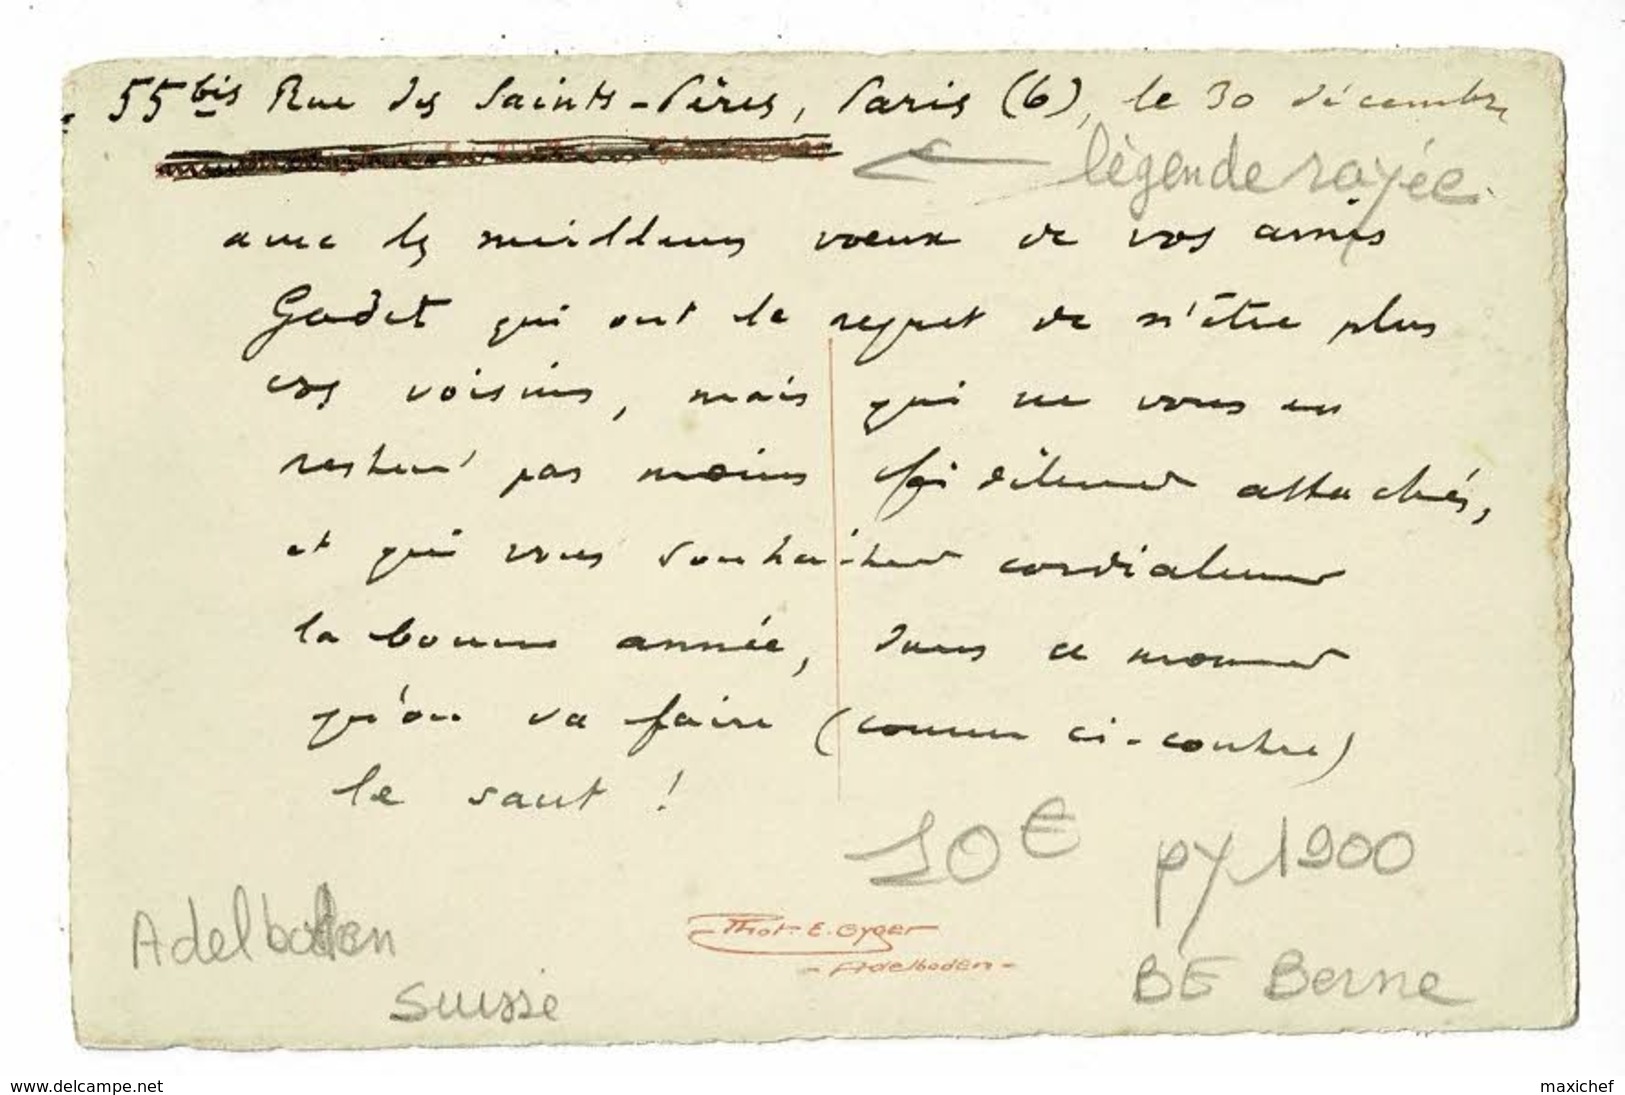 55bis Rue des Saints-Pères, Paris (6), le 30 décembre
légende rayée
avec les meilleurs voeux de vos amis
Gadet qui ont le regret de n'être plus
vos voisins, mais qui ne vous en
restent pas moins fidèlement attachés,
et qui vous souhaitent cordialement
la bonne année, dans ce moment
qu'on va faire (comme ci-contre)
le saut !
10€ py 1900
Adelboden
Suisse
Phot. E. Gyger
- Adelboden -
BE Berne
www.delcampe.net
maxichef